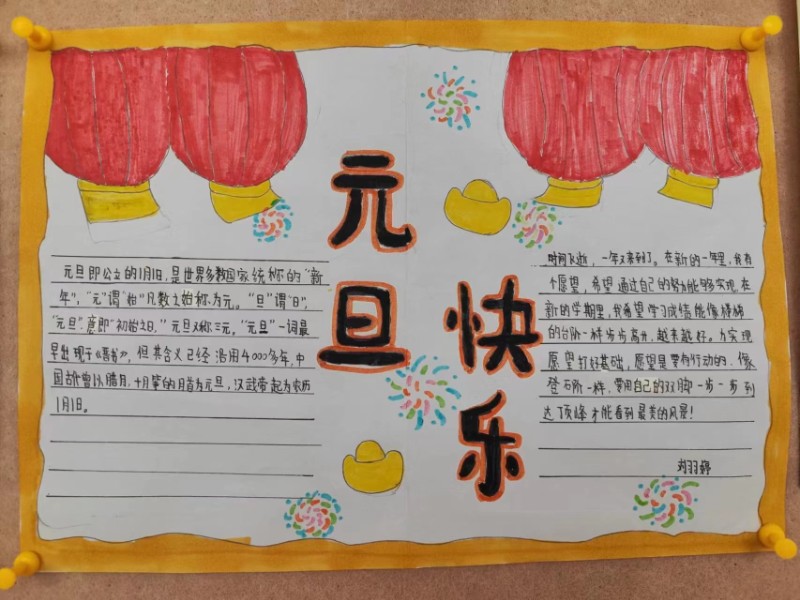 元旦
快乐
元旦即公立的1月1日,是世界多数国家统称的“新
年”,“元”谓“始”凡数之始称为元。“旦”谓“日”,
“元旦”意即“初始之日,”元旦又称三元,“元旦”一词最
早出现于《晋书》,但其含义已经沿用4000多年,中
国古代曾以腊月、十月等的月首为元旦,汉武帝起为农历
1月1日。
时间飞逝,一年又来到了。在新的一年里,我有
个愿望,希望通过自己的努力能够实现,在
新的学期里,我希望学习成绩能像楼梯
的台阶一样步步高升,越来越好。为实现
愿望打好基础,愿望是要有行动的,像
登石阶一样,要用自己的双脚一步一步到
达顶峰才能看到最美的风景!
刘羽婷